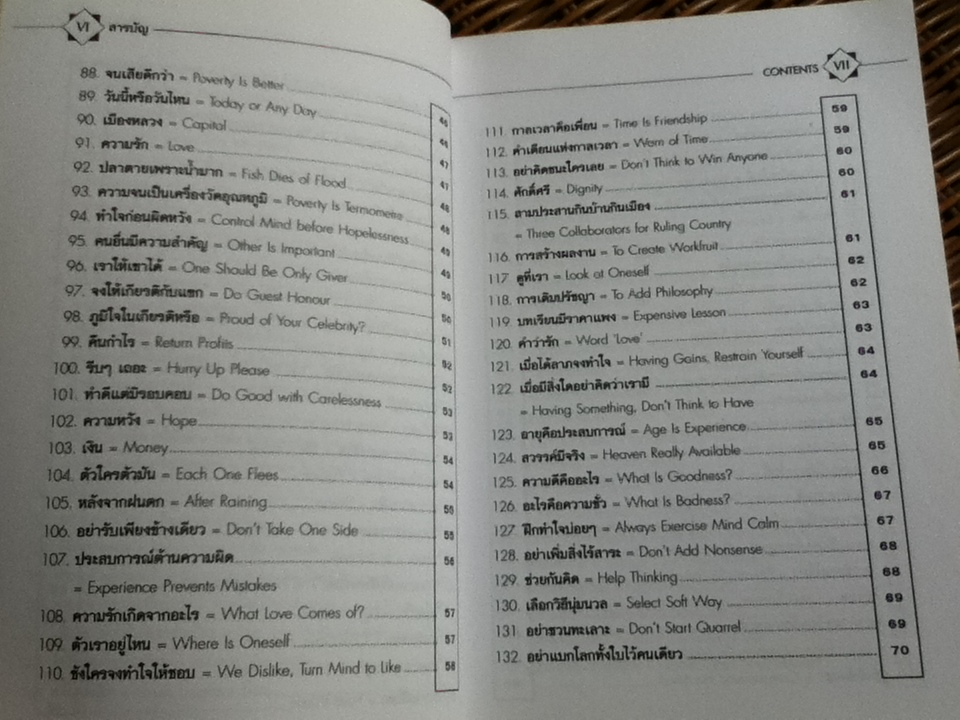 VI สารบัญ
88. จนเสียดีกว่า = Poverty Is Better
89. วันนี้หรือวันไหน = Today or Any Day 45
90. เมืองหลวง = Capital 46
91. ความรัก = Love 47
92. ปลาตายเพราะน้ำมาก = Fish Dies of Flood 47
93. ความจนเป็นเครื่องวัดอุณหภูมิ = Poverty Is Termometer 48
94. ทำใจก่อนผิดหวัง = Control Mind before Hopelessness 48
95. คนอื่นมีความสำคัญ = Other Is Important 49
96. เราให้เขาได้ = One Should Be Only Giver 49
97. จงให้เกียรติกับแขก = Do Guest Honour 50
98. ภูมิใจในเกียรติหรือ = Proud of Your Celebrity? 50
99. คืนกำไร = Return Profits 51
100. รีบๆ เถอะ = Hurry Up Please 52
101. ทำดีแต่มิรอบคอบ = Do Good with Carelessness 52
102. ความหวัง = Hope 53
103. เงิน = Money 53
104. ตัวใครตัวมัน = Each One Flees 54
105. หลังจากฝนตก = After Raining 54
106. อย่ารับเพียงข้างเดียว = Don't Take One Side 55
107. ประสบการณ์ต้านความผิด 55
= Experience Prevents Mistakes 56
108. ความรักเกิดจากอะไร = What Love Comes of? 57
109. ตัวเราอยู่ไหน = Where Is Oneself 57
110. ชังใครจงทำใจให้ชอบ = We Dislike, Turn Mind to Like 58
CONTENTS VII
111. กาลเวลาคือเพื่อน = Time Is Friendship 59
112. คำเตือนแห่งกาลเวลา = Warn of Time 59
113. อย่าคิดชนะใครเลย = Don't Think to Win Anyone 60
114. ศักดิ์ศรี = Dignity 60
115. สามประสานกินบ้านกินเมือง 61
= Three Collaborators for Ruling Country
116. การสร้างผลงาน = To Create Workfruit 61
117. ดูที่เรา = Look at Oneself 62
118. การเติมปรัชญา = To Add Philosophy 62
119. บทเรียนมีราคาแพง = Expensive Lesson 63
120. คำว่ารัก = Word 'Love' 63
121. เมื่อได้ลาภจงทำใจ = Having Gains, Restrain Yourself 64
122. เมื่อมีสิ่งใดอย่าคิดว่าเรามี 64
= Having Something, Don't Think to Have
123. อายุคือประสบการณ์ = Age Is Experience 65
124. สวรรค์มีจริง = Heaven Really Available 65
125. ความดีคืออะไร = What Is Goodness? 66
126. อะไรคือความชั่ว = What Is Badness? 67
127. ฝึกทำใจบ่อยๆ = Always Exercise Mind Calm 67
128. อย่าเพิ่มสิ่งไร้สาระ = Don't Add Nonsense 68
129. ช่วยกันคิด = Help Thinking 68
130. เลือกวิธีนุ่มนวล = Select Soft Way 69
131. อย่าชวนทะเลาะ = Don't Start Quarrel 69
132. อย่าแบกโลกทั้งใบไว้คนเดียว 70